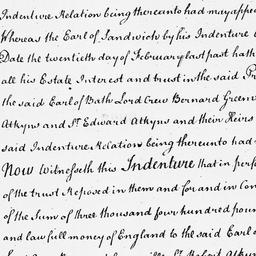 Indenture Relation being thereunto had may appear
Whereas the Earl of Sandwich by his Indenture
Date the twentieth day of February last past hath
all his Estate Interest and trust in the said
the said Earl of Bath Lord Crew Bernard Greenv
Atkyns and Sr. Edward Atkyns and their Heirs
said Indenture Relation being thereunto had
Now Witnesseth this Indenture that in perf
of the trust Reposed in them and for and in Con
of the Sum of three thousand four hundred poun
and lawfull money of England to the said Earl
Sr. Robert Atkyn